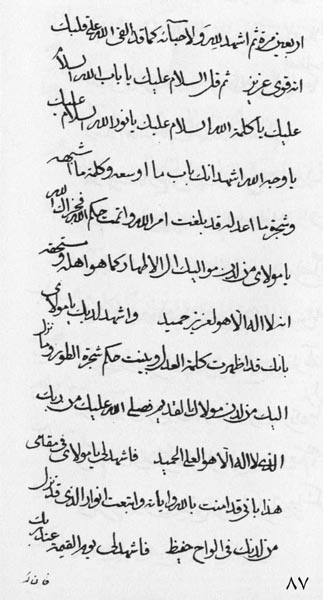 اربعین مرة ثم اشهد لله ولاحبائه کما قد القی الله علی قلبک
انه قوی عزیز ثم قل السلام علیک یا باب الله السلام
علیک یا کلمة الله السلام علیک یا نور الله السلام علیک
یا وجه الله اشهد انک باب ما اوسعه وکلمة ما
وشجرة ما اعدله قد بلغت امر الله واتممت حکم الله فجزاک الله
یا مولای من لدن موالیک آل الاطهار کما هو اهله ومستحقه
انه لا اله الا هو لعزیز حمید واشهد لدیک یا مولای
بانک قد اظهرت کلمة العدل وبینت حکم شجرة الطور وما نزل
الیک من لدن مولانا القدیم فصلی الله علیک من ربک
الذی لا اله الا هو العلی الحمید فاشهد لی یا مولای فی مقامی
هذا بانی قد امنت بالله وایاته واتبعت انوار الذی قد نزل
من لدیک فی الواح حفیظ فاشهد لی یوم القیمة عند ربک
٨٧